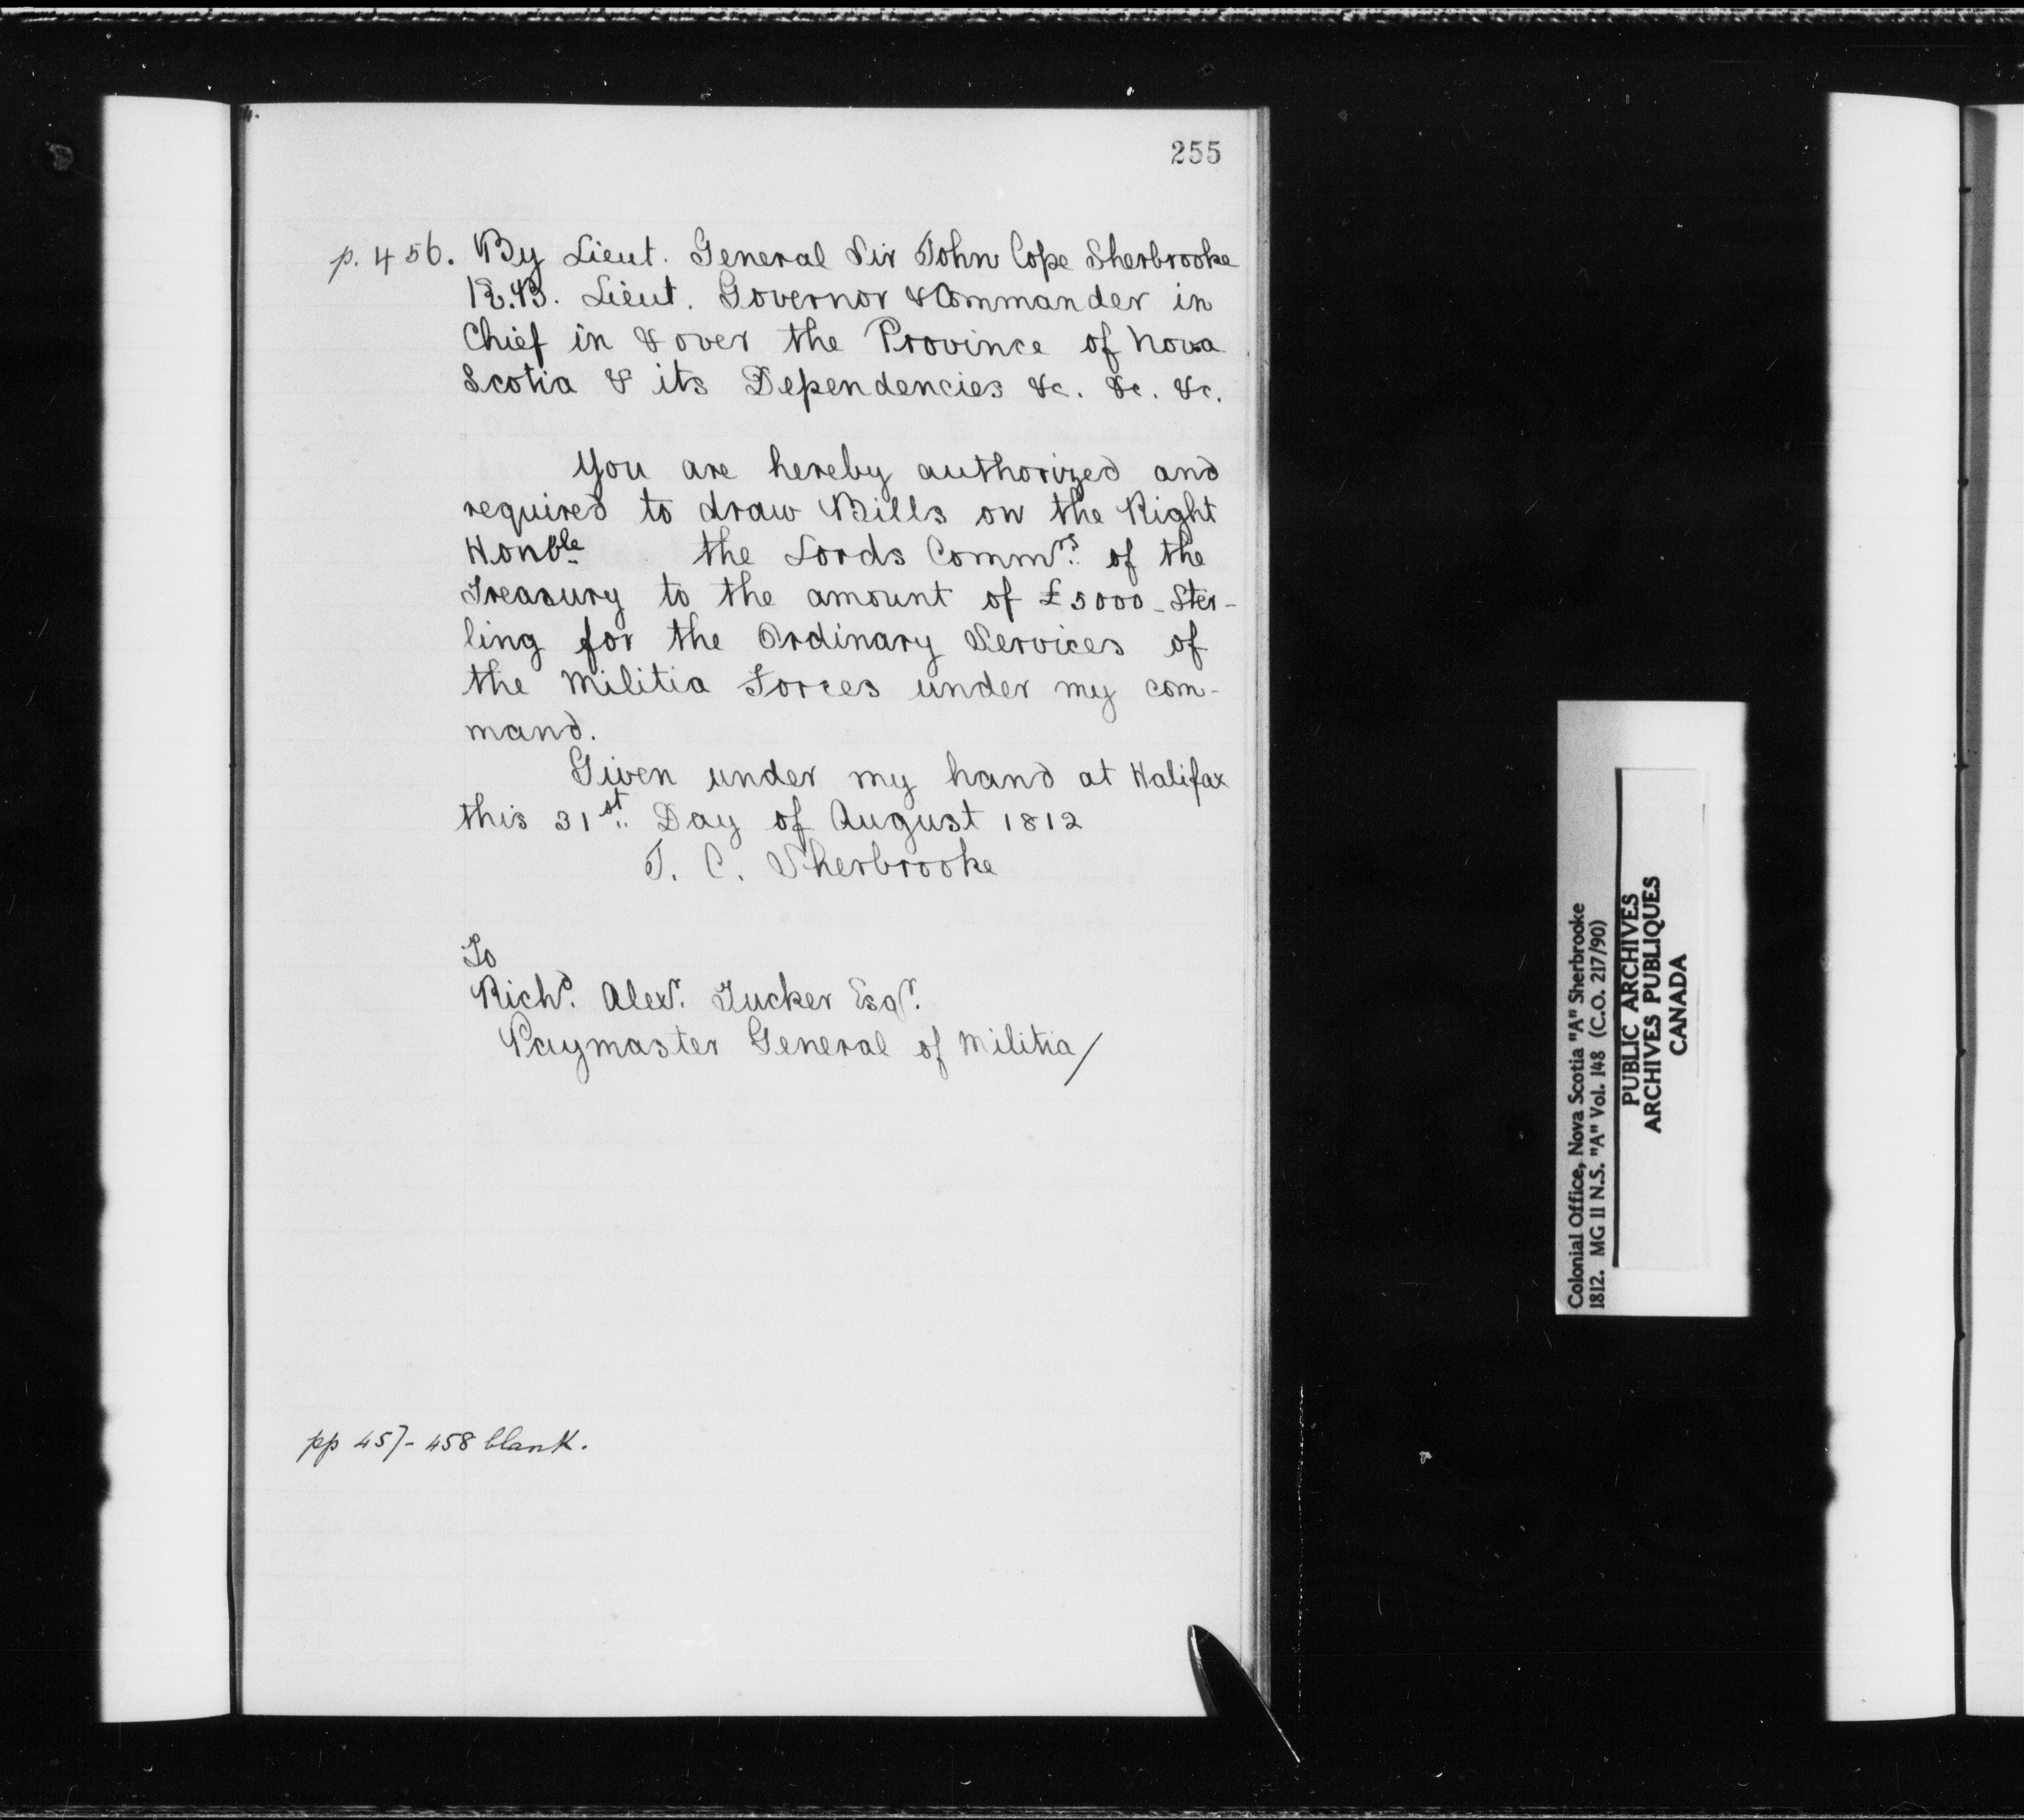 255
p. 456. By Lieut. General Sir John Cope Sherbrooke
K.B. Lieut. Governor & Commander in
Chief in & over the Province of Nova
Scotia & its Dependencies &c. &c. &c.
You are hereby authorized and
required to draw Bills on the Right
Honble the Lords Commrs. of the
Treasury to the amount of £5000 - Ster-
ling for the Ordinary Services of
the Militia Forces under my com-
mand.
Given under my hand at Halifax
this 31st. Day of August 1812
J. C. Sherbrooke
To
Richd. Alexr. Tucker Esqr.
Paymaster General of Militia/
pp 457-458 blank.
Colonial Office, Nova Scotia "A" Sherbrooke
1812. MG 11 N.S. "A" Vol. 148 (C.O. 217/90)
PUBLIC ARCHIVES
ARCHIVES PUBLIQUES
CANADA